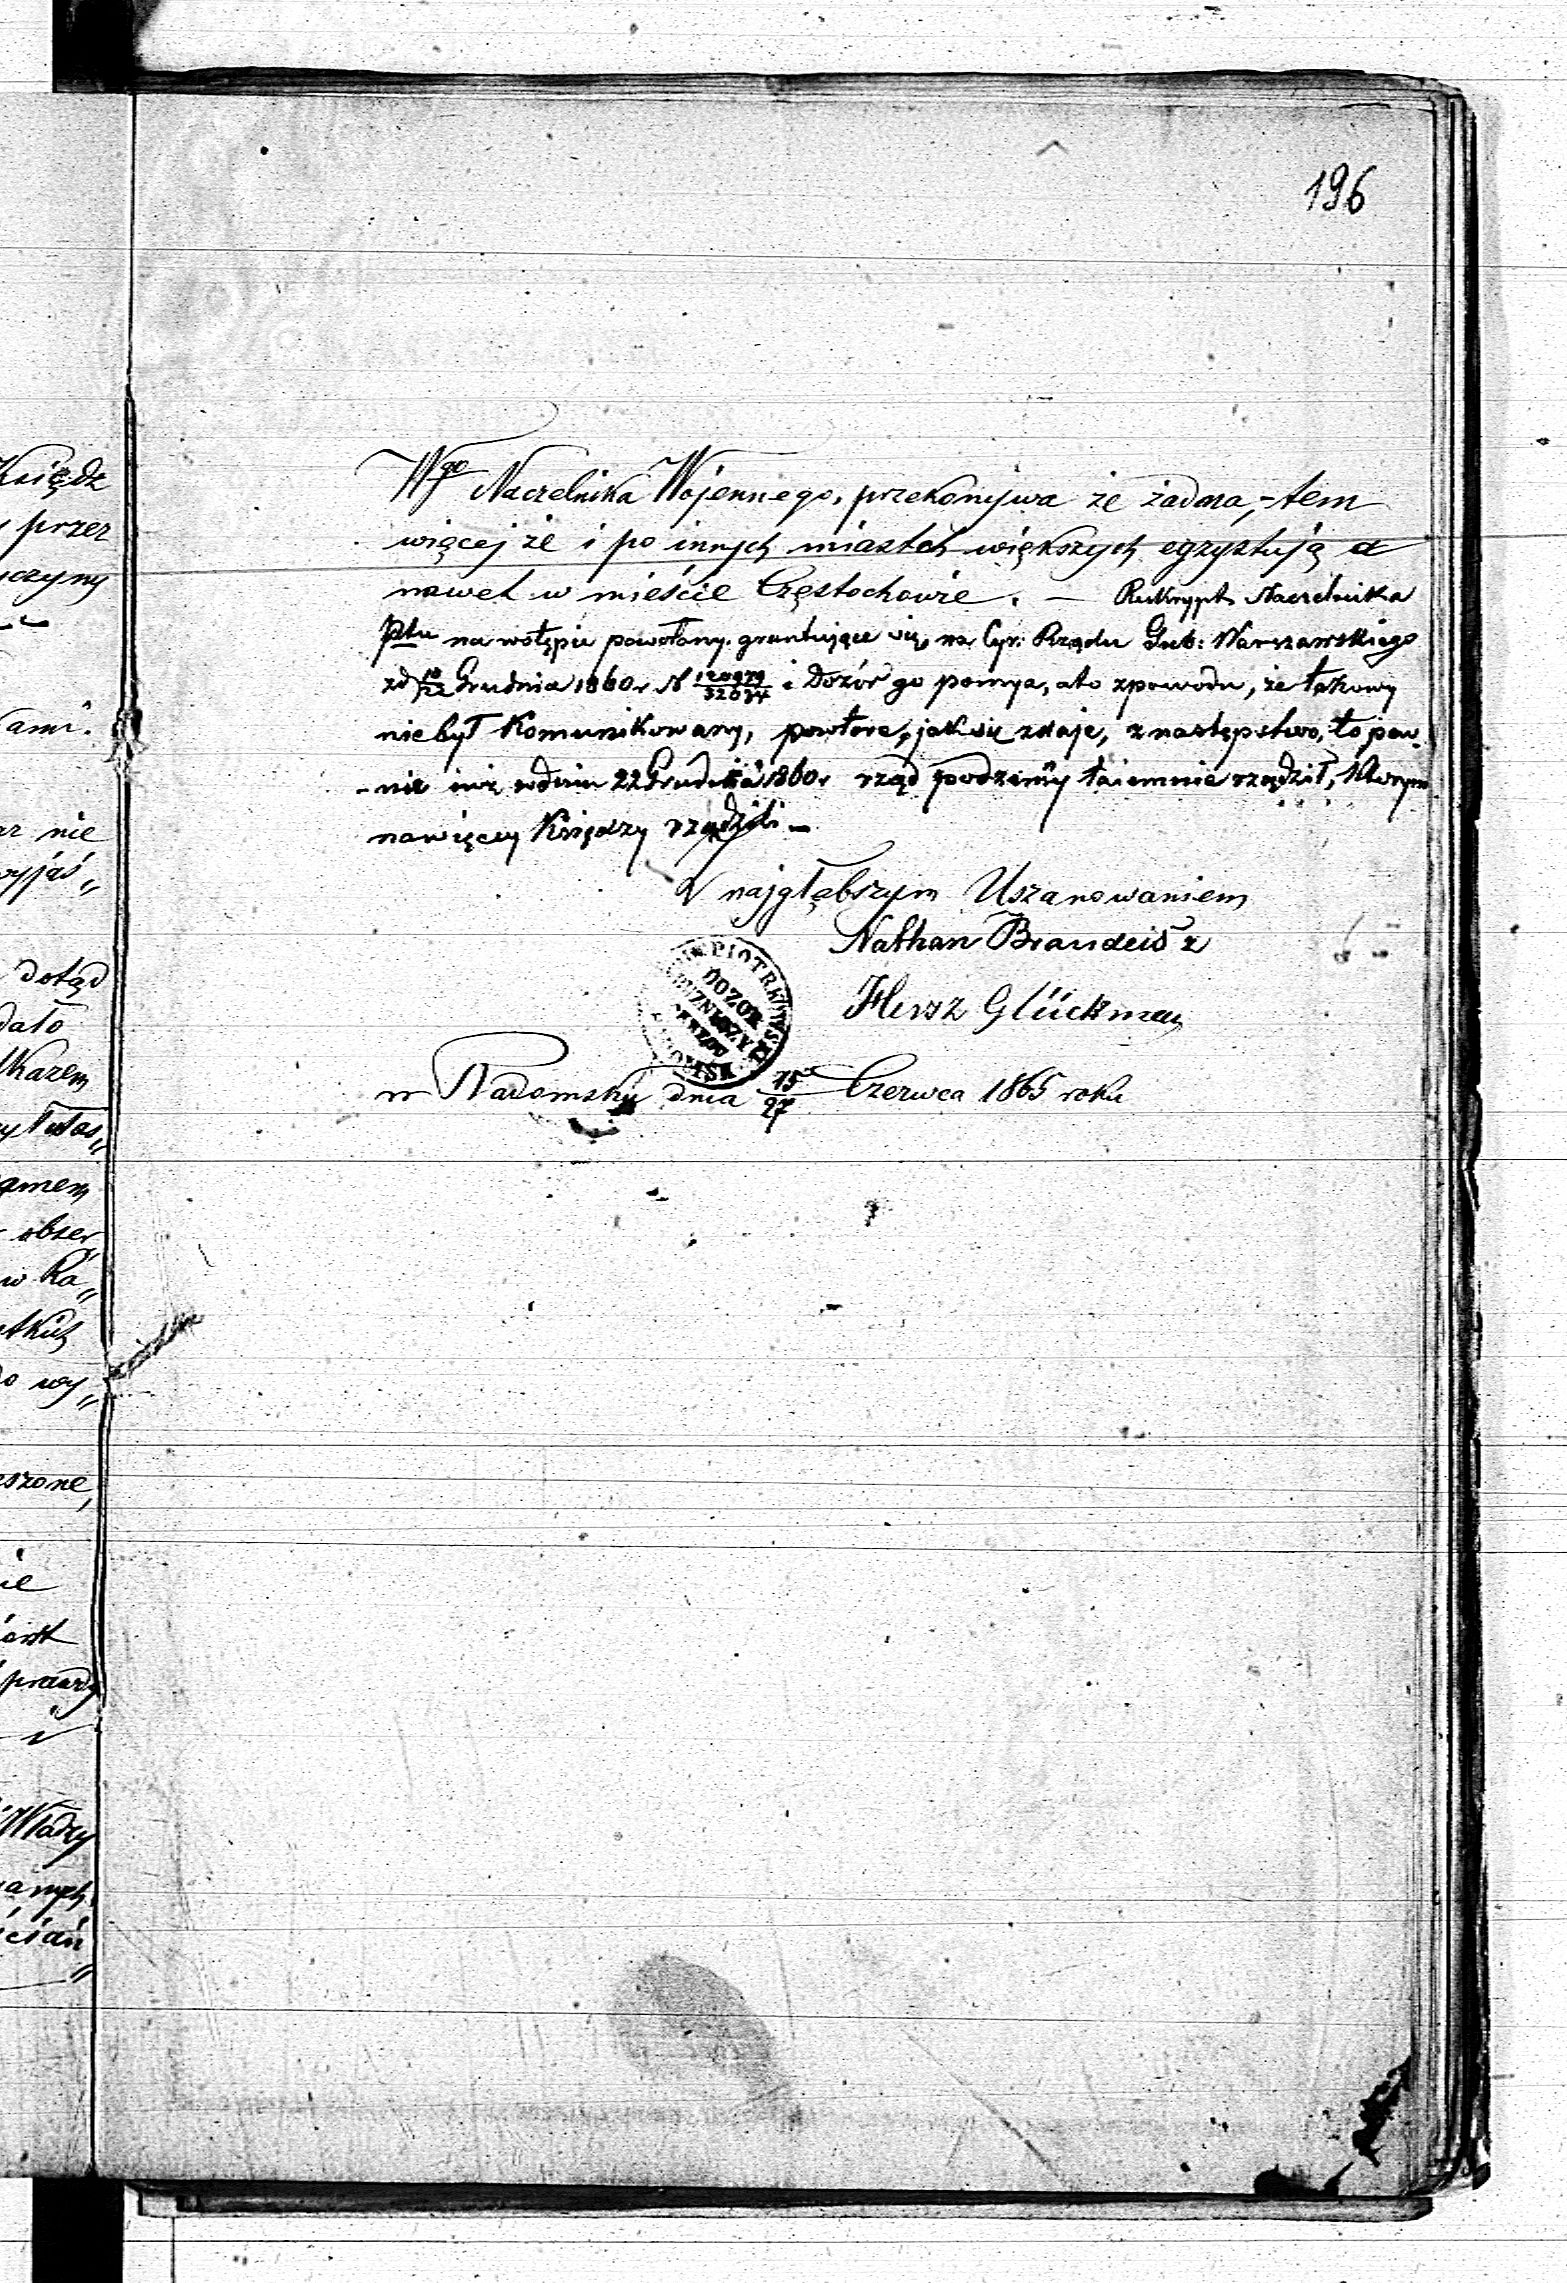 196
Wgo Naczelnika Wojennego, przekonywa że żadna,- tem
więcej że i po innych miastach większych egzystują a
nawet w mieście Częstochowie. — Reskrypt Naczelnika
Ptu na wstępie powołany. gruntujące się, na Cyr: Rządu Gub: Warszawskiego
zd 10/22 Grudnia 1860r N 120979/32034 i Dozór go pomija, a to zpowodu, że takowy
niebył Komunikowany, powtóre, jak się zdaje, z następstwo, to pew-
-nie iuż wdniu 22 Grudnia 1860r rząd podziemny taiemnie rządził, Którym
nawięcey Księdzy rządzili -
Z najgłębszym Uszanowaniem
Nathan Brandeis
Hersz Glückman
PIOTRK
DOZÓR
BÓŻNICZY
w Radomsku dnia 15/27 Czerwca 1865 roku
Ksiądz
przez
czyny
kami.
nie
wyjaś„
dotąd
dało
amem
obser„
w Ra„
do wy„
szone,
ie
prawdy
i
Władzy
anych
ścian„